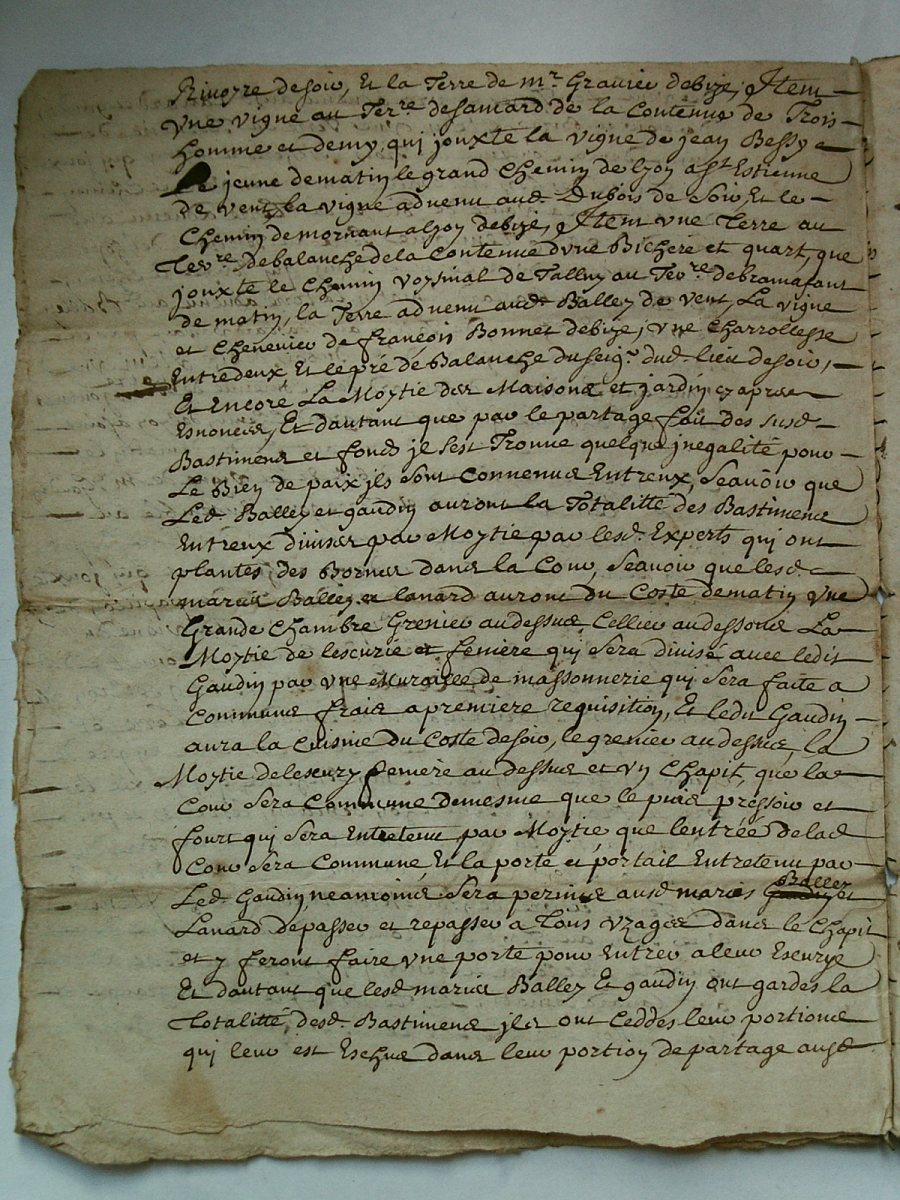 Rivoyre de soir, Et la Terre de mr. Gravier de bize, Item
Vne vigne au Terre. de samard de la Contenue de Trois
homme et demy, qui jouxte la vigne de jean Bessy
Le jeune de matin le grand Chemin de lyon a st Estienne
de vent, la vigne advenu aud. Dubois de Soir, Et le
Chemin de mornant a lyon de bize, Item vne Terre au
Terre. de balanche de la Contenue dvne Bichere et quart, que
jouxte le Chemin Voysinal de Talluy au Terre. de bramafant
de matin, la Terre advenu aud. Balley de vent, La vigne
et Chenevier de françois Bonnet de bize, vne Charrollesse
Entredeux Et le pré de Balanche du seigr. dud. lieu de soir,
Et Encore La Moytie des Maisons et jardin cy apres
Esnonces, Et dautant que par le partage fait des susd.
Bastimens et fonds il sest Trouue quelque jnegalité pour
Le Bien de paix ils sont Conuenus Entreux, Scauoir que
Led. Balley et gaudin auront la Totallitté des Bastimens
Entreux diuises par Moytie par lesd. Experts qui ont
plantes des Bornes dans la Cour, Scauoir que lesd.
maries Balley et lanard auront du Coste de matin Vne
Grande Chambre Grenier au dessus, Cellier au dessous La
Moytie de lescurie et feniere qui sera divisé auec ledit
Gaudin par vne Muraille de massonnerie qui Sera faite a
Communs frais a premiere requisition, Et ledit Gaudin
aura la Cuisine du Coste de soir, le grenier au dessus, la
Moytie de lescury feniere au dessus et vn Chapit, que la
Cour Sera Commune de mesme que le puis pressoir et
fourt qui Sera Entretenu par Moytie que lentrée de lad.
Cour Sera Commune, Et la porte et portail Entretenu par
Led. Gaudin, neantoins Sera permis ausd. maries Balley et
Lanard de passer et repasser a Tous Vzages dans le Chapit
et y feront faire vne porte pour Entrer a leur Escurye
Et dautant que lesd. maries Balley Et gaudin ont gardes la
Totallitté, desd. Bastimens jls ont Ceddes leur portions
qui leur est Escheue dans leur portion de partage ausd.